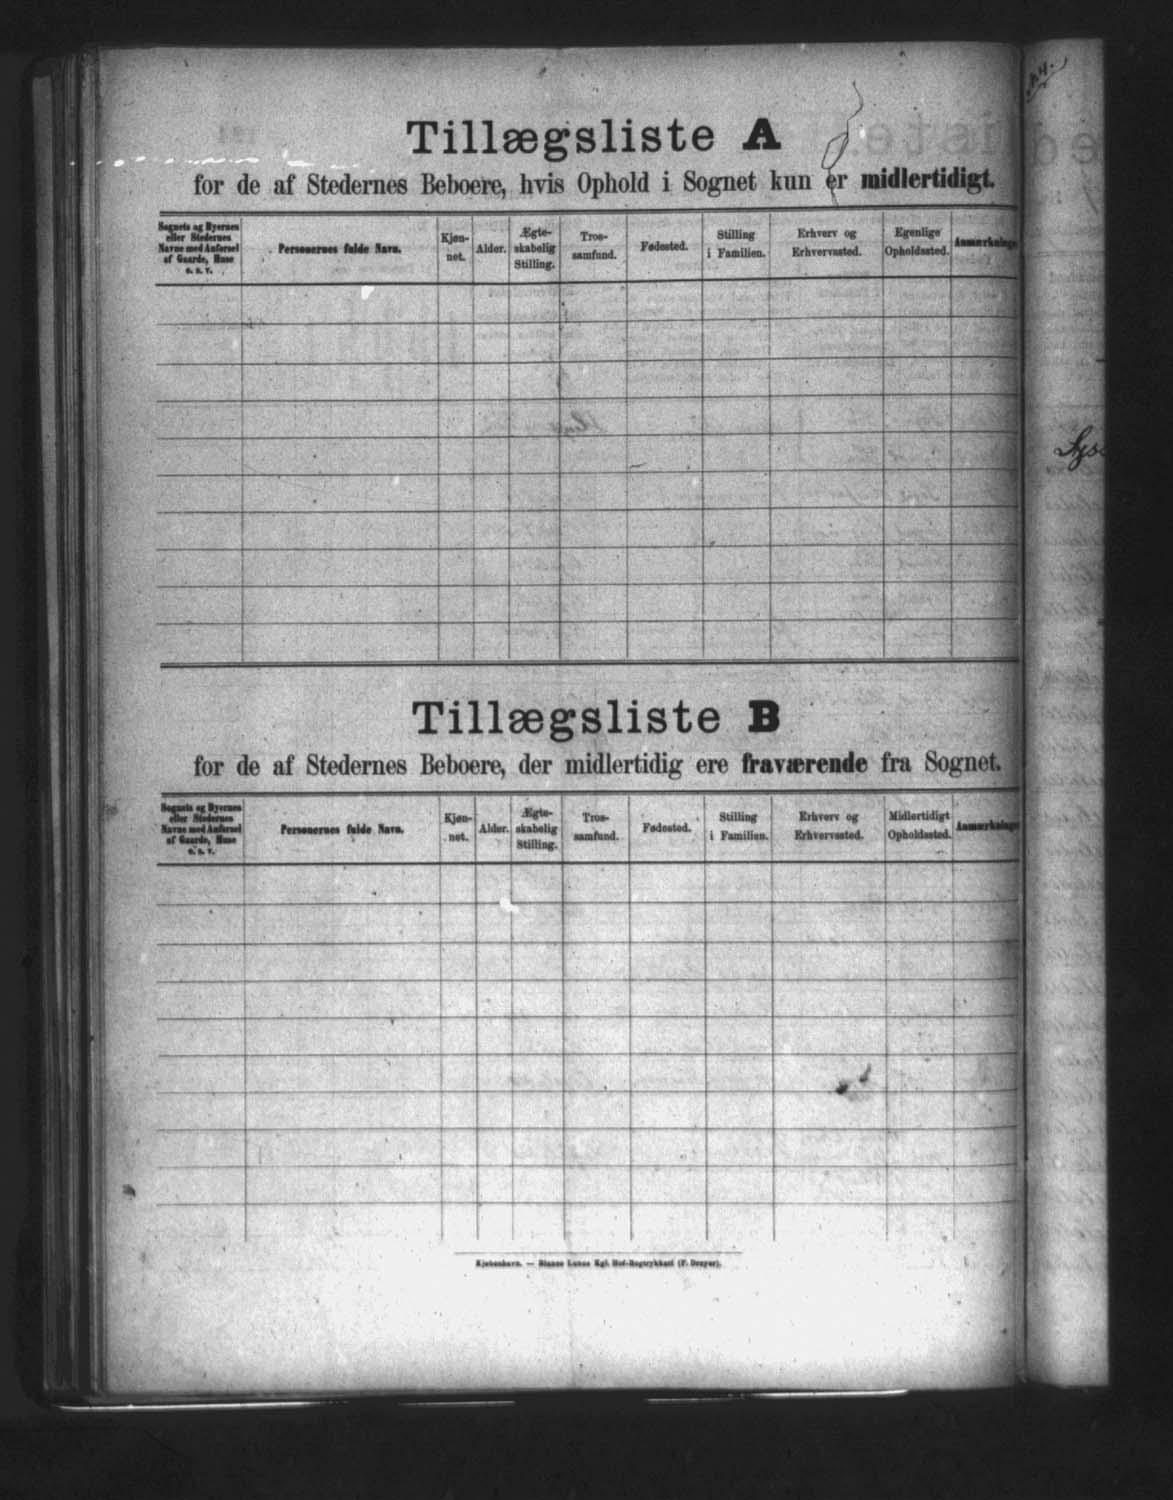 Tillægsliste A
for de af Stedernes Beboere, hvis Ophold i Sognet kun er midlertidigt.
Sognets og Byernes
eller Stedernes
Navne med Anførsel
af Gaarde, Huse
o. s. v.
Personernes fulde Navn.
Kjøn-
net.
Alder.
Ægte-
skabelig
Stilling.
Tros-
samfund.
Fødested.
Stilling
i Familien.
Erhverv og
Erhvervssted.
Egenlige
Opholdssted.
Anmærkninge
Tillægsliste B
for de af Stedernes Beboere, der midlertidig ere fraværende fra Sognet.
Sognets og Byernes
eller Stedernes
Navne med Anførsel
af Gaarde, Huse
o. s. v.
Personernes fulde Navn.
Kjøn-
net.
Alder.
Ægte-
skabelig
Stilling.
Tros-
samfund.
Fødested.
Stilling
i Familien.
Erhverv og
Erhvervssted.
Midlertidigt
Opholdssted.
Anmærkninge
Kjøbenhavn. — Bianco Lunos Kgl. Hof-Bogtrykkeri (F. Dreyer).